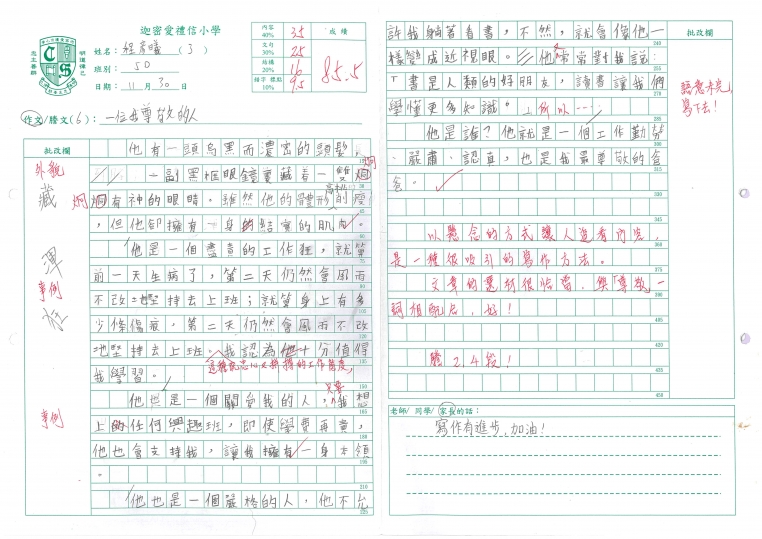 迦密愛禮信小學
內容 40% 35
文句 30% 25
結構 20% 16
錯字 標點 10% 9.5
成績
85.5
姓名: (3)
班別: 5D
日期: 11 月 30 日
作文/謄文(6): 一位我尊敬的人
批改欄
外貌
藏
炯
事例
事例
他有一頭烏黑而濃密的頭髮,
一副黑框眼鏡裏藏着一雙炯
炯有神的眼睛,雖然他的體形削瘦
,但他卻擁有一身結實的肌肉。
他是一個盡責的工作狂,就算
前一天生病了,第二天仍然會風雨
不改地堅持去上班;就算身上有多
少條傷痕,第二天仍然會風雨不改
地堅持去上班。我認為他十分值得
這種認忠心又拼搏的工作態度,
我學習。
他也是一個關愛我的人,我想
只要
上的任何興趣班,即使學費再貴,
他也會支持我,讓我擁有一身本領
。
他也是一個嚴格的人,他不允
許我躺著看書,不然,就會像他一
樣變成近視眼。他常常對我說:
「書是人類的好朋友,讀書讓我們
學懂更多知識。」所以……
他是誰?他就是一個工作勤勞
、嚴肅、認真,也是我最尊敬的爸
爸。
批改欄
語意未完,
寫下去!
以懸念的方式讓人追看內容,
是一種很吸引的寫作方法。
文章的選材很恰當,與「尊敬」一
詞相配合,好!
謄2.4段!
老師/ 同學/ 家長的話:
寫作有進步,加油!